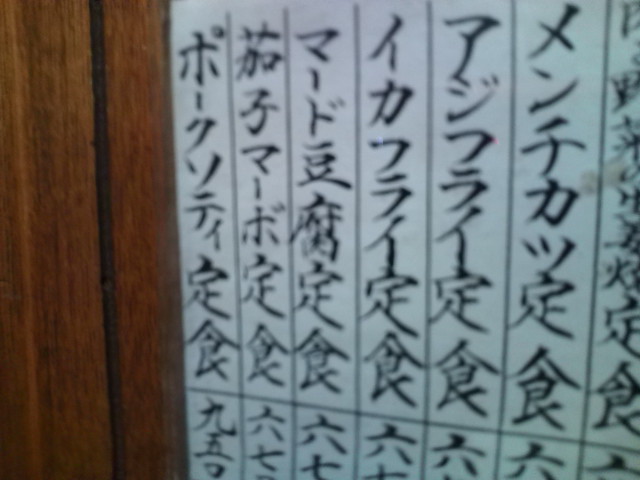 肉と野菜の生姜焼定食 六
メンチカツ定食 六
アジフライ定食 六
イカフライ定食 六七
マード豆腐定食 六七
茄子マーボ定食 六七
ポークソティ定食 九五〇